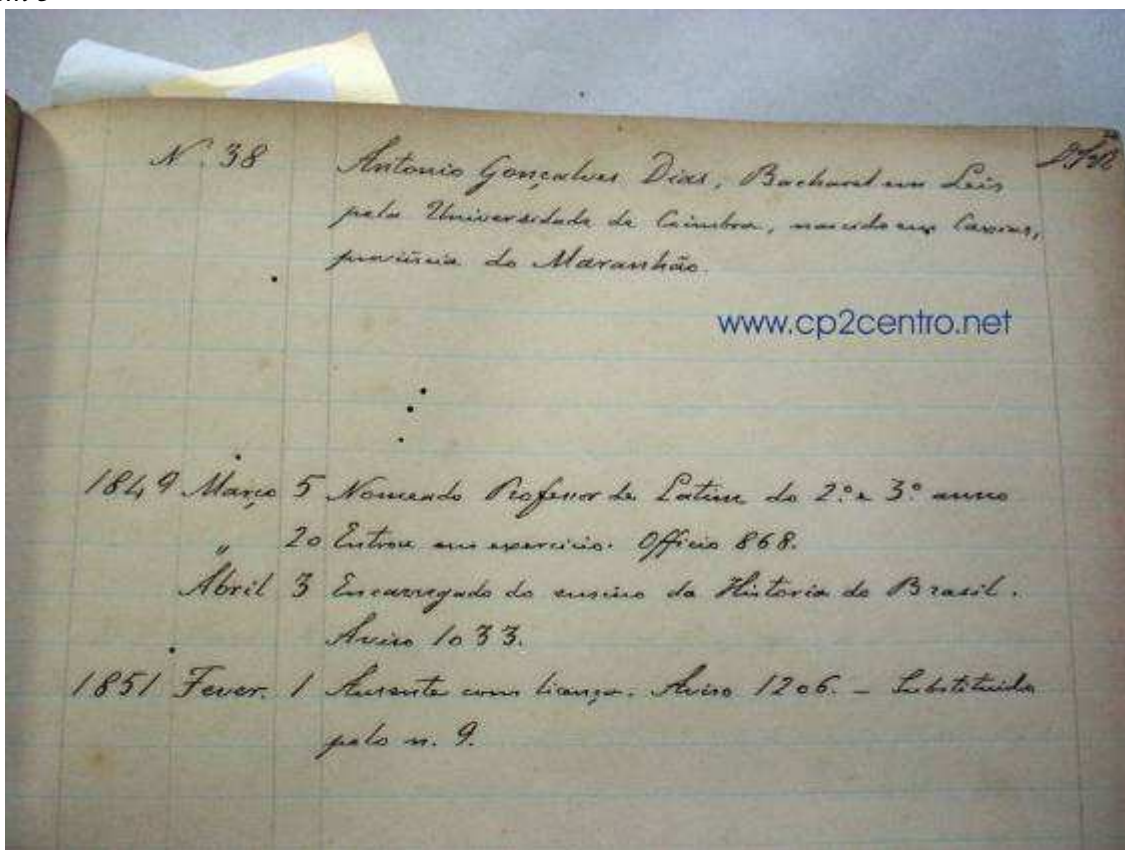 N. 38 Antonio Gonçalves Dias, Bacharel em Leis
pela Universidade de Coimbra, nascido em Caxias,
provincia do Maranhão.
www.cp2centro.net
1849 Março 5 Nomeado Professor de Latim do 2.º e 3.º anno
" 20 Entrou em exercicio. Officio 868.
Abril 3 Encarregado do ensino da Historia do Brasil.
Aviso 1033.
1851 Fever. 1 Ausente com licença. Aviso 1206. – Substituido
pelo n. 9.